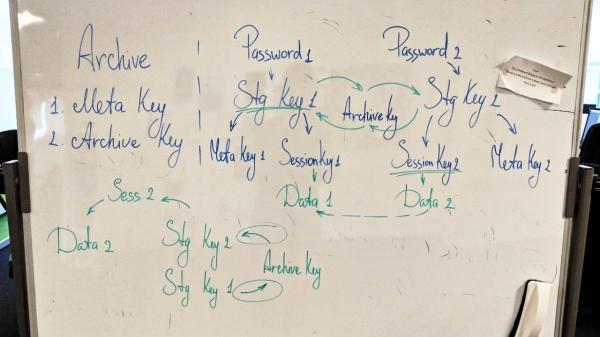 Archive
1. Meta Key
2. Archive Key
Password 1
Password 2
Stg Key 1
Archive Key
Stg Key 2
Meta Key 1
Session Key 1
Session Key 2
Meta Key 2
Data 1
Data 2
Sess 2
Data 2
Stg Key 2
Archive Key
Stg Key 1